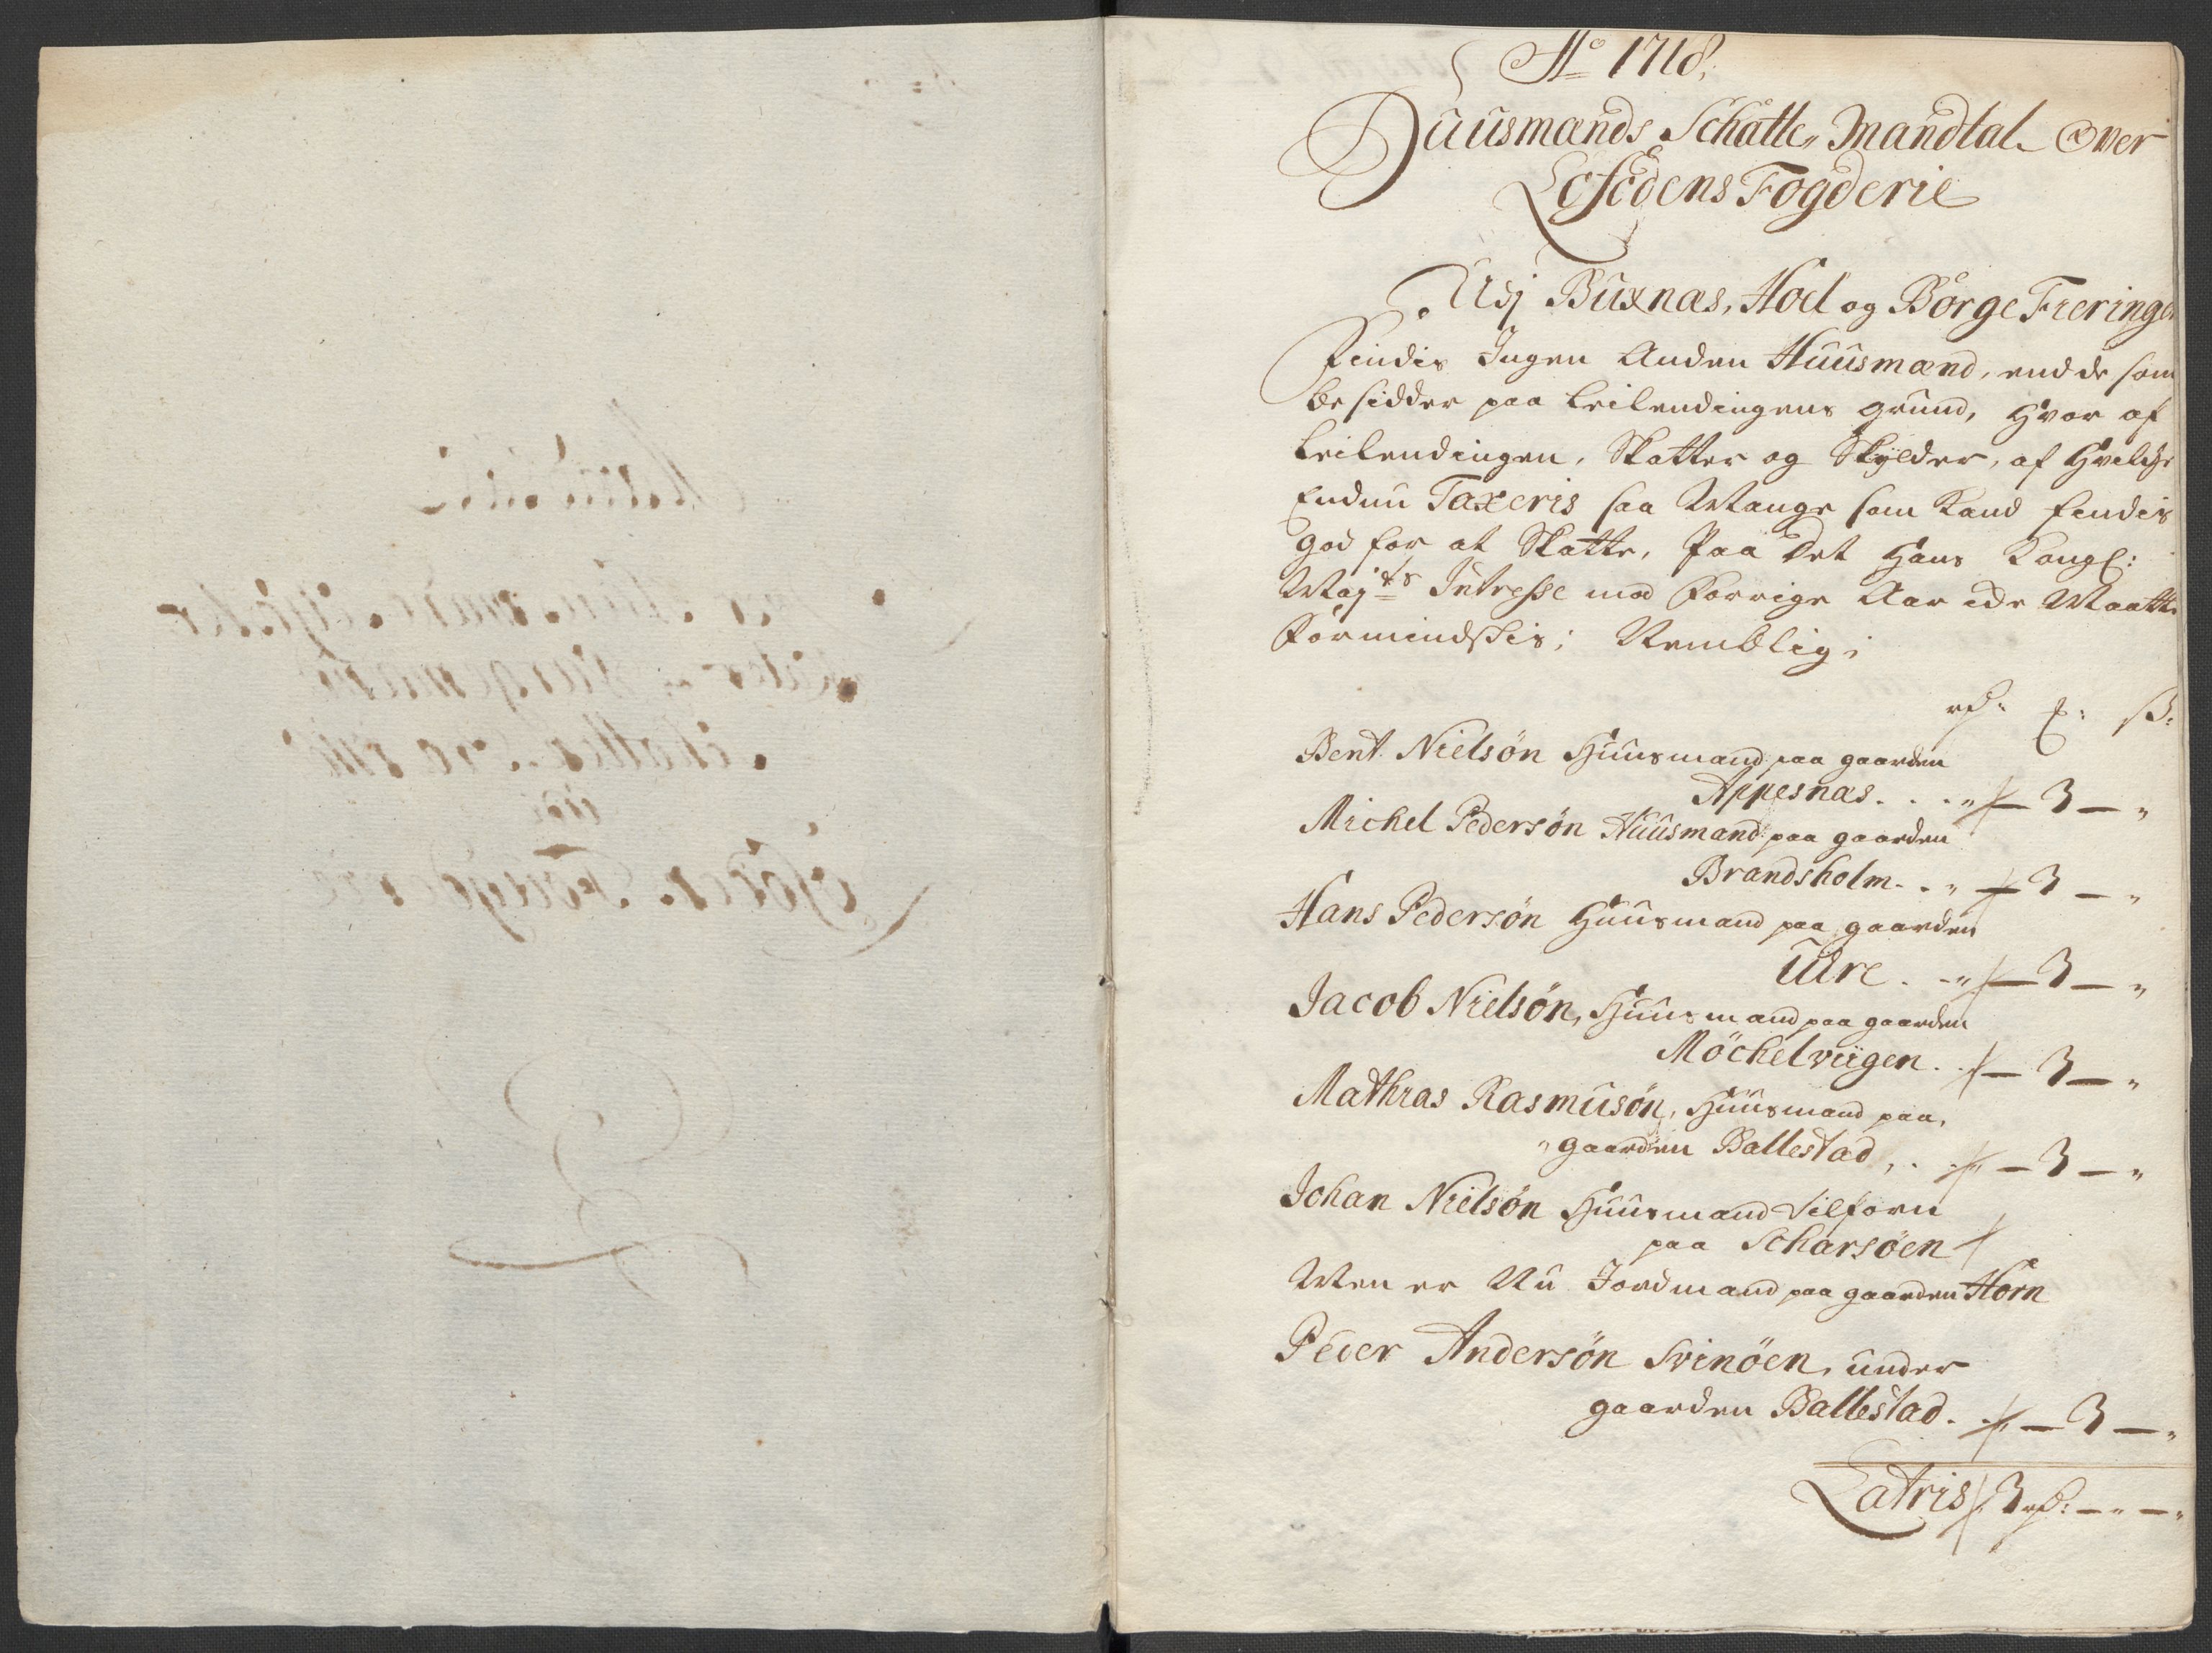 Ao 1718,
Huusmands Schatte, Mandtal Over
Lofodens Fogderie
Udj Buxnæs, Hoel og Börge Fieringer
Findis Ingen Anden Huusmænd, end de som
besidder paa Leilendingens grund, hvor af
Leilendingen, Skatter og Skylder, af hvilche
Endnu Taxeris saa Mange som Kand findis
god for at Skatte, Paa det Hans Kongl:
Mayts Intresse mod Forrige Aar icke Maatte
Formindskis; Nemblig;
rdr: [?]: ß:
Bent Nielsön Huusmand paa gaarden
Appesnæs. . . „ — 3 — „
Michel Pedersön Huusmand paa gaarden
Brandsholm. . „ — 3 — „
Hans Pedersön Huusmand paa gaarden
Uure . . „ — 3 — „
Jacob Nielsön, Huusmand paa gaarden
Möchelviigen . . — 3 — „
Mathias Rasmusön, Huusmand paa,
gaarden Ballestad, . . — 3 — „
Johan Nielsön Huusmand Tilforn
paa Scharsöen
Men er Nu Jordmand paa gaarden Horn
Peder Andersön Svinöen, under
gaarden Ballestad. . — 3 — „
Latris 3 rdr: — „ — „